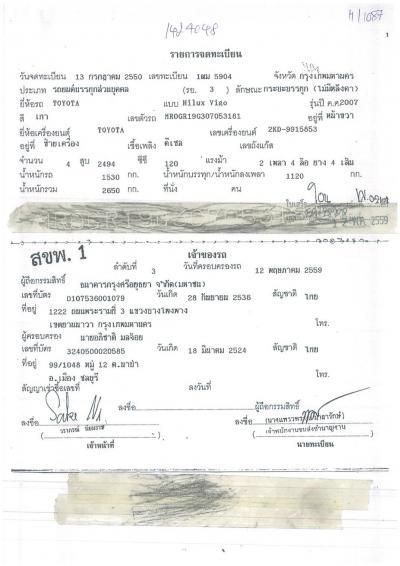 รายการจดทะเบียน
1
วันจดทะเบียน 13 กรกฎาคม 2550 เลขทะเบียน 1ฒผ 5904 จังหวัด กรุงเทพมหานคร
ประเภท รถยนต์บรรทุกส่วนบุคคล (รย. 3 ) ลักษณะ กระบะบรรทุก (ไม่มีหลังคา)
ยี่ห้อรถ TOYOTA แบบ Hilux Vigo รุ่นปี ค.ศ. 2007
สี เทา เลขตัวรถ MR0GR19G307053161 อยู่ที่ หน้าขวา
ยี่ห้อเครื่องยนต์ TOYOTA เลขเครื่องยนต์ 2KD-9915853
อยู่ที่ ซ้ายเครื่อง เชื้อเพลิง ดีเซล เลขถังแก๊ส
จำนวน 4 สูบ 2494 ซีซี 120 แรงม้า 2 เพลา 4 ล้อ ยาง 4 เส้น
น้ำหนักรถ 1530 กก. น้ำหนักบรรทุก/น้ำหนักลงเพลา 1120 กก.
น้ำหนักรวม 2650 กก. ที่นั่ง คน
2559
สขพ. 1
เจ้าของรถ
ลำดับที่ 3 วันที่ครอบครองรถ 12 พฤษภาคม 2559
ผู้ถือกรรมสิทธิ์ ธนาคารกรุงศรีอยุธยา จำกัด(มหาชน)
เลขที่บัตร 0107536001079 วันเกิด 28 กันยายน 2536 สัญชาติ ไทย
ที่อยู่ 1222 ถนนพระรามที่ 3 แขวงบางโพงพาง
เขตยานนาวา กรุงเทพมหานคร โทร.
ผู้ครอบครอง
เลขที่บัตร 3240500020585 วันเกิด 18 มีนาคม 2524 สัญชาติ ไทย
ที่อยู่ 99/1048 หมู่ 12
อ.เมือง ชลบุรี โทร.
สัญญาเช่าซื้อเลขที่ ลงวันที่
ลงชื่อ ผู้ถือกรรมสิทธิ์
ลงชื่อ ลงชื่อ
เจ้าพนักงานขนส่งชำนาญงาน
เจ้าหน้าที่ นายทะเบียน